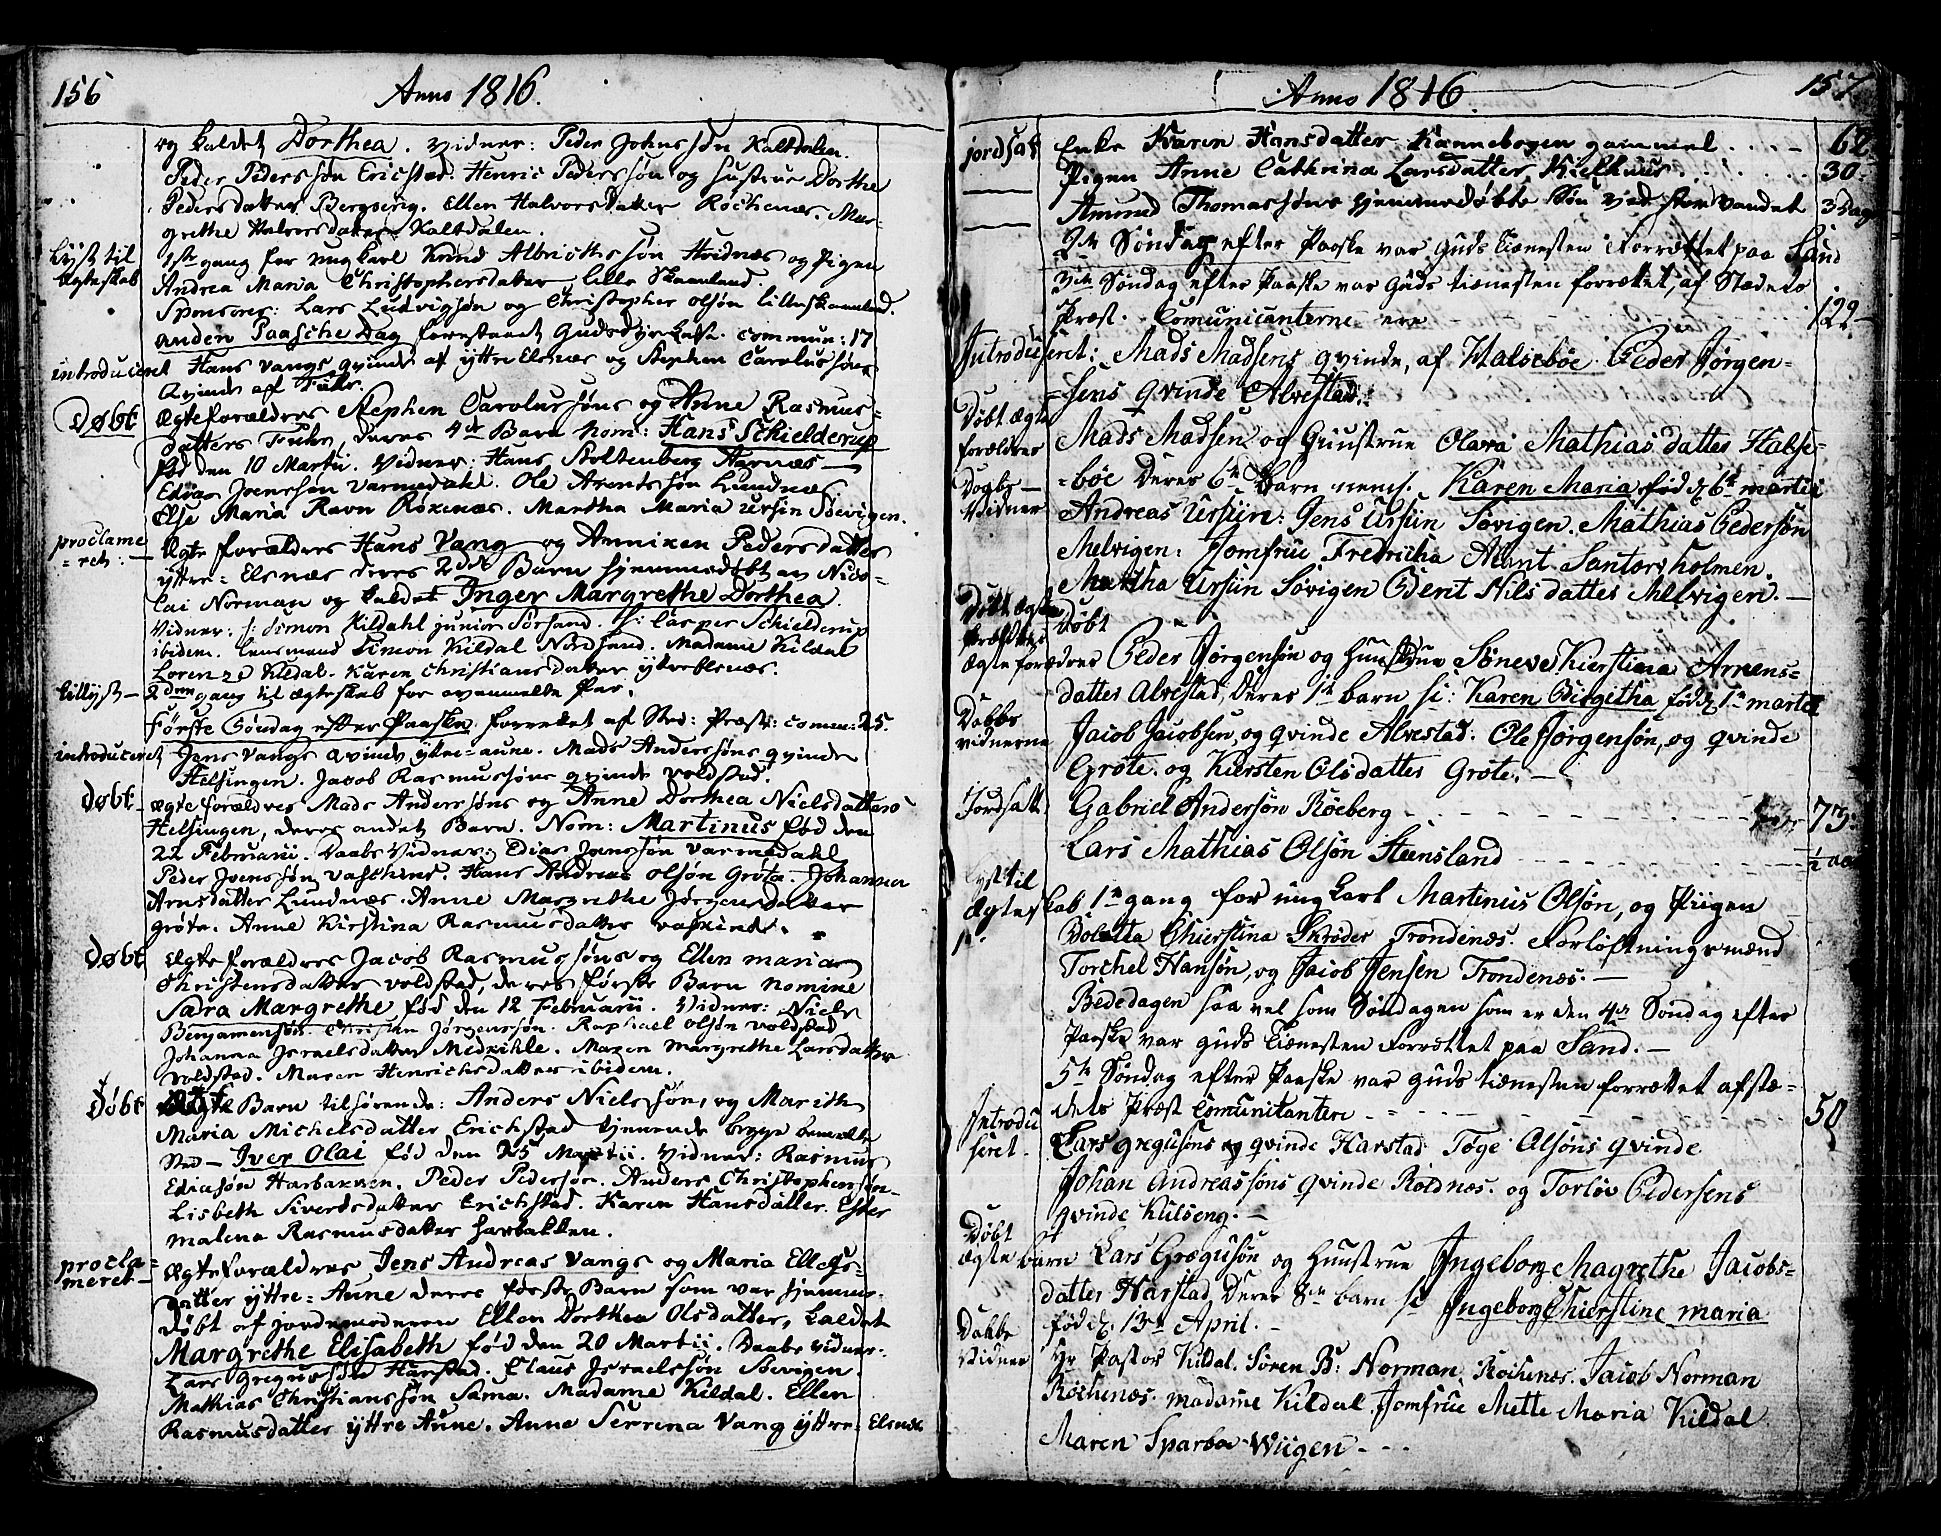 156
Anno 1816.
og kaldet Dorthea. Vidner: Peder Johnssøn Kaltdalen.
Peder Pederssøn Ericstad. Henric Pederssøn og hustrue Dorthe
Pedersdatter Bergseng. Ellen Halvorsdatter Røchenæs. Mar-
grethe Halvorsdatter Kaltdalen.
Lyst til
Ægteskab
1ste gang for ungkarl Knud Albrigthssøn Hvidnæs og Pigen
Andrea Maria Christophersdatter lille Skaanland.
Sponsores: Lars Ludvigsøn og Christopher Olsøn lilleskaanland.
anden Paasche Dag forrettaret Gudsdyrkelse. Commun: 17
introduceret Hans Vangs qvinde af yttre Elsnæs og Stephen Carolussøns
Qvinde af Fuhr.
Døbt
Ægteforældres Stephen Carolussøns og Anne Rasmus-
datters Fuhr, deres 4de Barn Nom: Hans Schielderup
fød den 10 Martii. Vidner: Hans Stoltenberg Aarnæs —
Edias Joenssøn Varmedahl. Ole Arentssøn Lundnæs
Else Maria Ravn Røkenæs. Martha Maria Ursin Søevigen.
proclame
= ret: —
Ægteforældres Hans Vang og Anniken Pedersdatter
yttre = Elsnæs deres 2det Barn hjemmedøbt av Nico-
lai Norman og kaldet Inger Margrethe Dorthea.
Vidner: Hr. Simon Kildahl junior Sørsand. Hr. Casper Schielderup
ibidem. Lensmand Simon Kildal Nordsand. Madame Kildal
Lorenze Kildal. Karen Christiansdatter ytterElsnæs.
tillyst — 2den gang til ægteskab for ovenmelte Par.
Første Søndag efter Paasken forrettet af Sted: Præst: commun: 25.
introduceret Jens Vangs Qvinde yttre=aune. Mads Anderssøns qvinde
Helsingen. Jacob Rasmussøns qvinde Voldstad.
Døbt —
ægteforældres Mads Anderssøns og Anne Dorthea Nielsdatters
Helsingen, deres andet Barn. Nom: Martinus fød den
22 Februarii. Daabs Vidner: Edias Joenssøn Varmedahl
Peder Joenssøn Vaschend. Hans Andreas Olsøn Grøta. Johanna
Arnsdatter Lundnæs. Anne Margrethe Jørgensdatter
grøta. Anne Kirstina Rasmusdatter Vaskinde.
Døbt
Ægteforældres Jacob Rasmussøns og Ellen maria
Christensdatters Voldstad, deres første Barn nomine
Sara Margrethe fød den 12 Februarii. Vidner: Niels
Benjamensøn. Christen Jørgenssøn. Raphael Olsøn Voldstad
Johanna Jsraelsdatter Medkihle. Maren margrethe Larsdatter
Voldstad. Maren Henrichsdatter ibidem.
Døbt
Barn tilhørende: Anders Nielssøn, og Marith
Maria Michelsdatter Erichstad tjenende begge bemeldte
Sted — Iver Olai fød den 25 Martii. Vidner: Rasmus
Ediasøn Harbakken. Peder Pedersøn. Anders Christophersøn
Lisbeth Sivertsdatter Erichstad. Karen Hansdatter. Ester
malena Rasmusdatter harbakken.
procla=
meret —
Ægteforældres Jens Andreas Vangs og Maria Ellefs-
datter yttre=Aune deres første Barn som var hjemme-
døbt af jordemoderen Ellen Dorthea Olsdatter, kaldet
Margrethe Elisabeth fød den 20 Martii. Daabs vidner:
Lars Gregussøn Harstad. Claus Jsraelssøn Sevigen.
Mathias Christianssøn Sama. Madame Kildal. Ellen
Rasmusdatter yttre Aune. Anne Serrena Vang yttre = Elsnæs
157
Anno 1816.
jordsat
Enke Karen Hansdatter Kannebogen gammel . . . . — 62
Pigen Anne Cathrina Larsdatter Kielhuus . . . . . . 30
Amund Thomassøns hjemmedøbte Søn ved storvandet 3 Dage
2de Søndag efter Paaske var Guds tienesten Forrættet paa Sand
3die Søndag efter Paaske var Guds tienesten forrættet, af Stædets
Præst. Comunicanterne ere — — — 122 —
Introduseret: Mads Madsens qvinde, af Halsebøe. Peder Jørgen=
=sens qvinde Alvestad.
Døbt ægte
forældrer
Mads Madsen og Huustrue Olava Mathiasdatter Halse=
=bøe Deres 6te Barn neml. Karen Maria fød d. 6te martii
Dogbs —
Vidner
Andreas Ursiin: Jens Ursiin Sørigen. Mathias Pedersøn
Melvigen. Jomfrue Fredricha Alant Santorsholmen.
Martha Ursiin Sørigen Berit Nilsdatter Melvigen. —
Døbt
Ægte forædrer Peder Jørgensøn og Huustrue Søneve Kierstina Arnens=
dattes Alvestad, Deres 1te barn si: Karen Birgitha fød d. 1te martii
Dabbs
vidnerne
Jacob Jacobsen, og qvinde Alvestad. Ole Jørgensøn, og qvinde
Grøte. og Kiersten Olsdatter Grøte. —
Jordsatt
Gabriel Andersøn Røeberg — — — 73
Lars Mathias Olsøn Steensland — — — ½ aar
Lyst til
Ægteskab 1te gang for ungkarl Martinus Olsøn, og Piigen
Bolætta Chierstina Skrøder Trondenæs. Forløftningsmænd
Torchel Hansøn, og Jacob Jensen Trondenæs. —
Bededagen saa vel som Søndagen som er den 4de Søndag efter
Paaske var guds tienesten forrættet paa Sand. —
5te Søndag efter Paaske var guds tienesten forrættet af stæ=
dets Præst Comunikanter — — — 50
Introdu
seret.
Lars gregusøns qvinde Harstad Tøge Olsøns qvinde
Johan Andreassøns qvinde Røldnæs. og Torlov Pedersens
qvinde Kulseng. —
Døbt
Ægte barn Lars Grægusøn og Huustrue Ingeborg Magrethe Jacobs=
datter Harstad Deres 8de barn si Ingeborg Chierstine maria
fød d. 13de April. —
Dabbs
Vidner
Hr Pastor Kildal. Søren B: Norman, Røikenæs. Jacob Norman
Røikenæs. madame Kildal. Jomfrue Mette Maria Kildal
Maren Sparboe Wiigen — — —